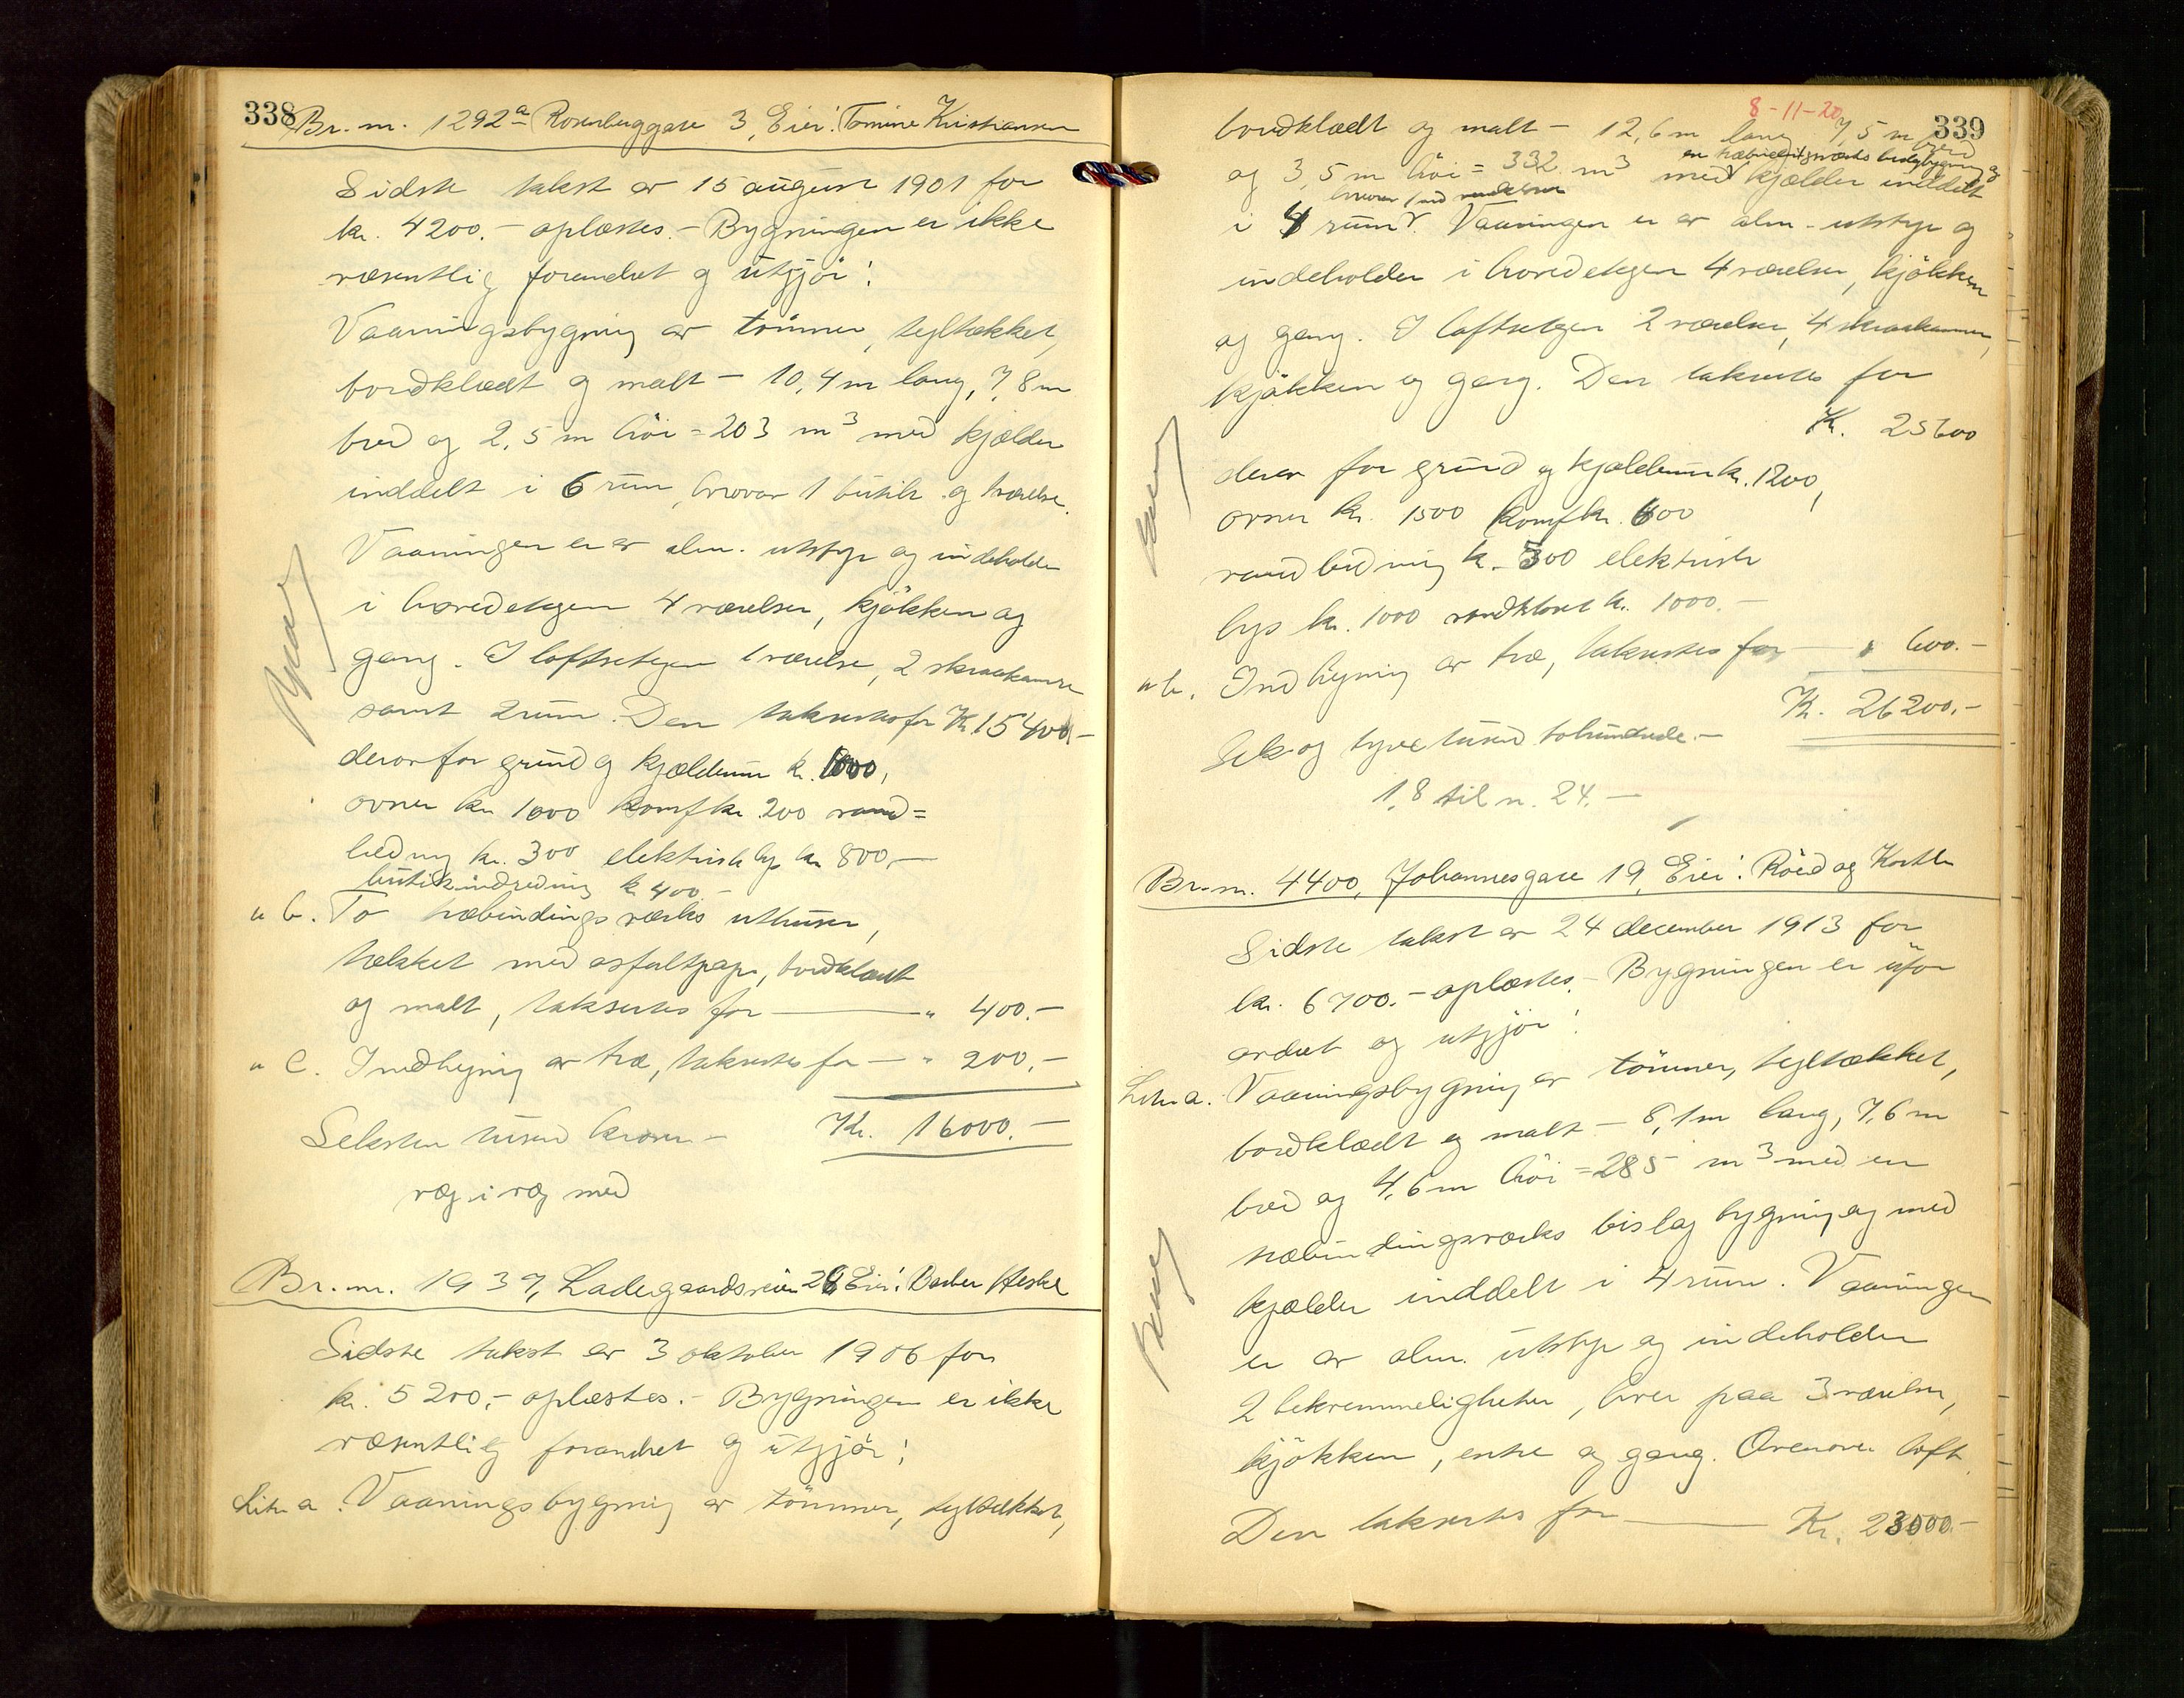 338
Br. nr. 1292a Rosenberggate 3, Eier: Tomine Kristiansen
Sidste takst av 15 august 1901 for
kr. 4200.- oplæstes.- Bygningen er ikke
væsentlig forandret og utgjör:
Vaaningsbygning av tömmer, tegltækket,
bordklædt og malt - 10,4 m lang, 7,8 m
bred og 2,5 m höi = 203 m3 med kjælder
inddelt i 6 rum, hvorav 1 butik og 1 værelse.
Vaaningen er av alm. utstyr og indeholder
i hovedetagen 4 værelser, kjökken og
gang. I loftsetagen 1 værelse, 2 skraakamre
samt 2 rum. Den takseres for Kr. 15400.-
derav for grund og kjælderrum kr. 1000,
ovner kr. 1000 komf kr. 200 vand=
ledning kr. 300 elektrisk lys kr. 800.-
butikindredning kr. 400.-
" b. To træbindingsværks uthuser,
tækket med asfaltpap, bordklædt
og malt, takseres for " 400.-
" c. Indhegning av træ, takseres for - " 200.-
Seksten tusen kroner - Kr. 16000.-
væg i væg med
Br. nr. 1937, Ladegaardsveien 26 Eier: Heske
Sidste takst av 3 oktober 1906 for
kr. 5200.- oplæstes.- Bygningen er ikke
væsentlig forandret og utgjör:
Litr. a. Vaaningsbygning av tömmer, tegltækket,
8-11-20
339
bordklædt og malt - 12,6 m lang 7,5 m bred
en træbindingsværks bislagbygning og
og 3,5 m höi = 332 m3 med kjælder inddelt
hvorav 1
i 4 rum. Vaaningen er av alm. utstyr og
indeholder i hovedetagen 4 værelser, kjökken
og gang. I loftsetagen 2 værelser, 4 skraakamre,
kjökken og gang. Den takseres for
Kr. 25600
derav for grund og kjælderrum kr. 1200,
ovner kr. 1500 komf kr. 600
vandledning kr. 300 elektrisk
lys kr. 1000 vandkloset kr. 1000.-
" b. Indhegning av træ, takseres for - " 600.-
Kr. 26200.-
Seks og tyve tusind tohundrede.-
1,8 til n. 24.-
Br. nr. 4400, Johannesgate 19, Eier: Röed og
Sidste takst av 24 december 1913 for
kr. 6700.- oplæstes.- Bygningen er ufor
andret og utgjör:
Litr. a. Vaaningsbygning av tömmer, tegltækket,
bordklædt og malt - 8,1 m lang, 7,6 m
bred og 4,6 m höi = 285 m3 med en
træbindingsværks bislagbygning og med
kjælder inddelt i 4 rum. Vaaningen
er av alm. utstyr og indeholder
2 bekvemmeligheter, hver paa 3 værelser,
kjökken, entre og gang. Ovenover loft.
Den takseres for Kr. 23000.-